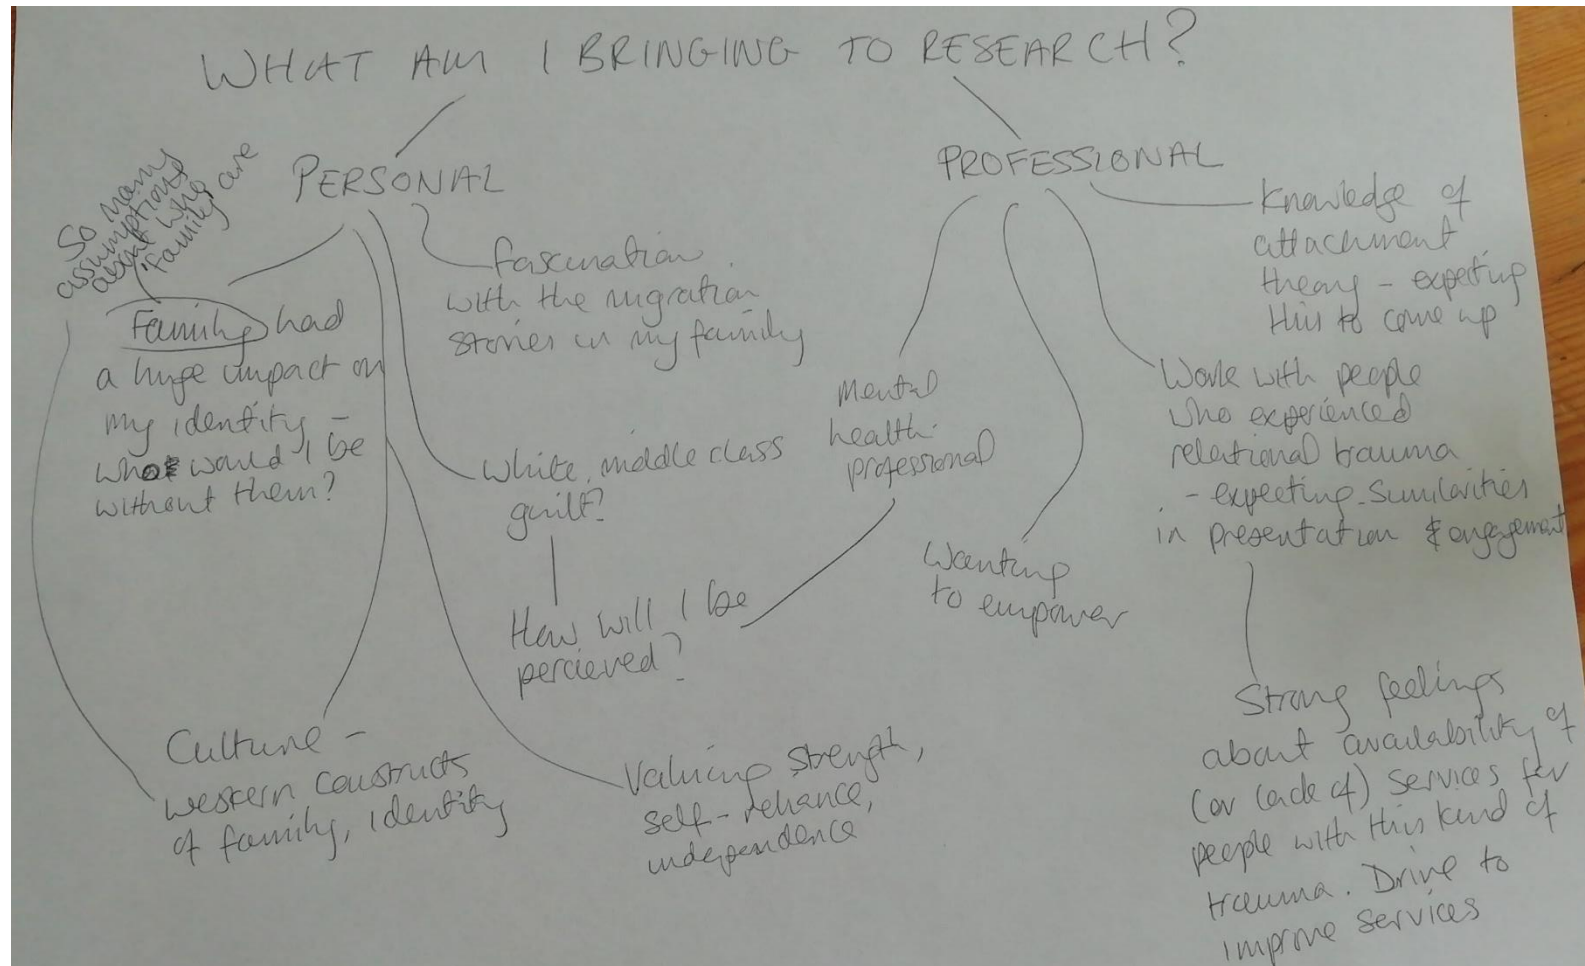 WHAT AM I BRINGING TO RESEARCH?
PERSONAL
So many
assumptions
about who
'family' are
Family had
a huge impact on
my identity -
who would I be
without them?
fascination
with the migration
stories in my family
White, middle class
guilt?
How will I be
percieved?
Culture -
western constructs
of family, identity
Valuing strength,
self-reliance,
independence
PROFESSIONAL
Mental
health
professional
Wanting
to empower
Knowledge of
attachment
theory - expecting
this to come up
Work with people
who experienced
relational trauma
- expecting similarities
in presentation & engagement
Strong feelings
about availability of
(or lack of) services for
people with this kind of
trauma. Drive to
improve services